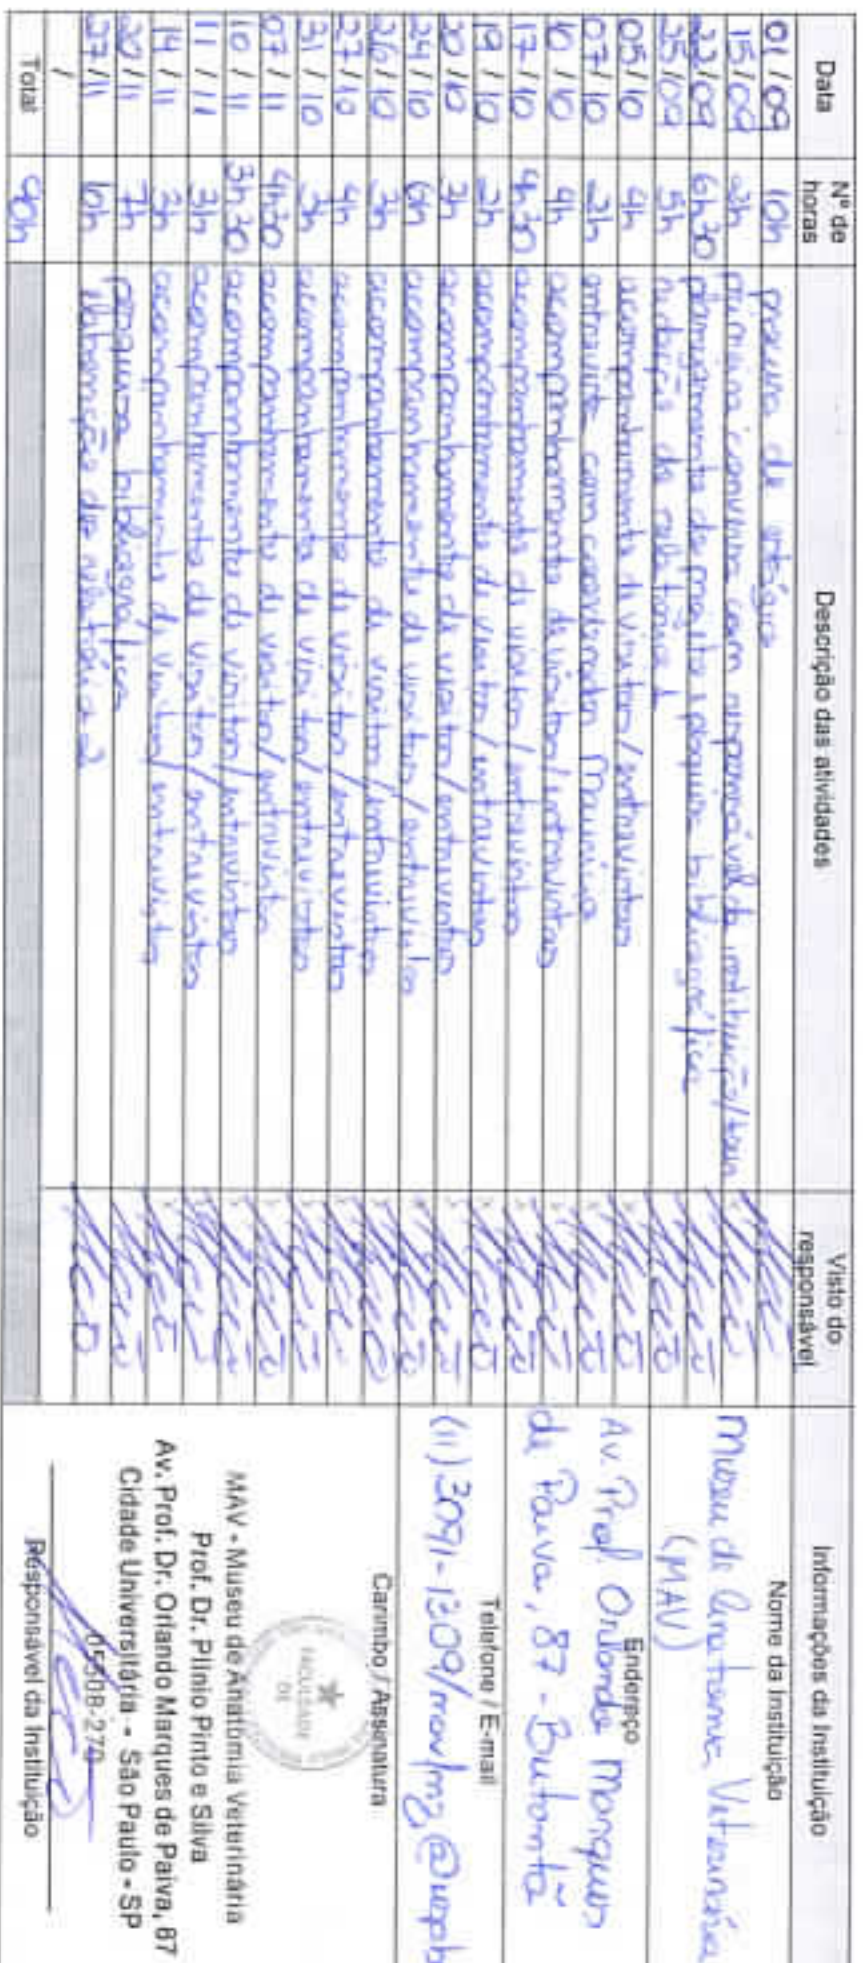 Data Nº de horas Descrição das atividades Visto do responsável Informações da Instituição
01/09 10h procura de estágio
15/09 2h primeira conversa com responsável da instituição/tour
22/09 6h30 planejamento de projeto, pesquisa bibliográfica
25/09 5h redação do relatório 1
05/10 4h acompanhamento de visitas/entrevistas
07/10 2h entrevista com coordenador Maurício
10/10 4h acompanhamento de visitas/entrevistas
17/10 4h30 acompanhamento de visitas/entrevistas
19/10 2h acompanhamento de visitas/entrevistas
20/10 3h acompanhamento de visitas/entrevistas
24/10 6h acompanhamento de visitas/entrevistas
26/10 3h acompanhamento de visitas/entrevistas
27/10 4h acompanhamento de visitas/entrevistas
31/10 3h acompanhamento de visitas/entrevistas
07/11 4h30 acompanhamento de visitas/entrevistas
10/11 3h30 acompanhamento de visitas/entrevistas
11/11 3h acompanhamento de visitas/entrevistas
14/11 3h acompanhamento de visitas/entrevistas
20/11 7h pesquisa bibliográfica
27/11 10h elaboração do relatório 2
/
Total 90h
Nome da Instituição
Museu de Anatomia Veterinária
(MAV)
Endereço
Av. Prof. Orlando Marques
de Paiva, 87 - Butantã
Telefone / E-mail
(11) 3091-1309/
Carimbo / Assinatura
FACULDADE
DE
MAV - Museu de Anatomia Veterinária
Prof. Dr. Plinio Pinto e Silva
Av. Prof. Dr. Orlando Marques de Paiva, 87
Cidade Universitária - São Paulo - SP
05508-270
Responsável da Instituição